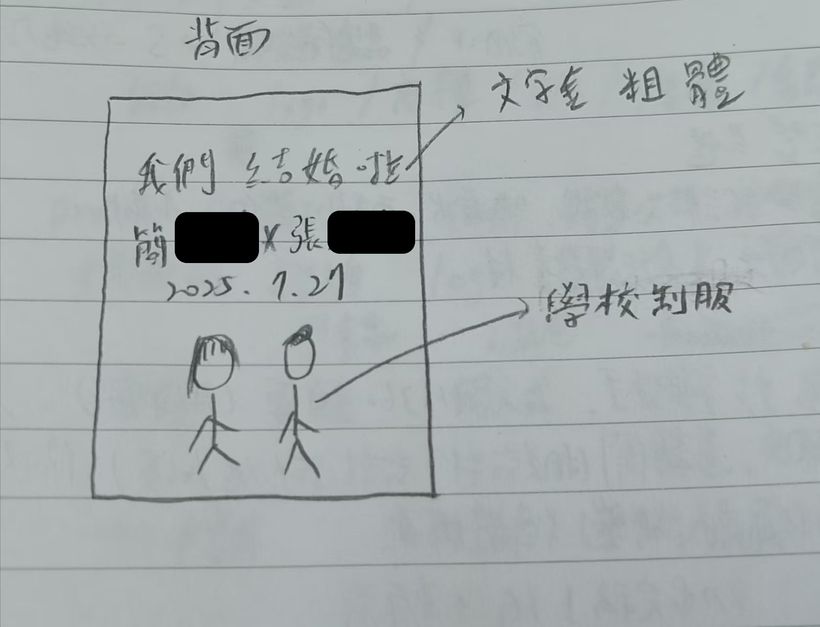 背面
文字要 粗體
我們 結婚啦
簡 X 張
2025. 7.27
學校制服